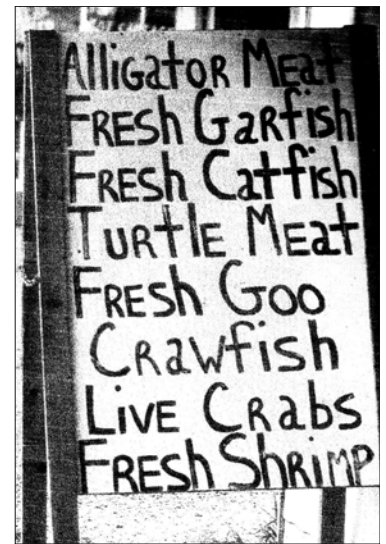 Alligator Meat
Fresh Garfish
Fresh Catfish
Turtle Meat
Fresh Goo
Crawfish
Live Crabs
Fresh Shrimp